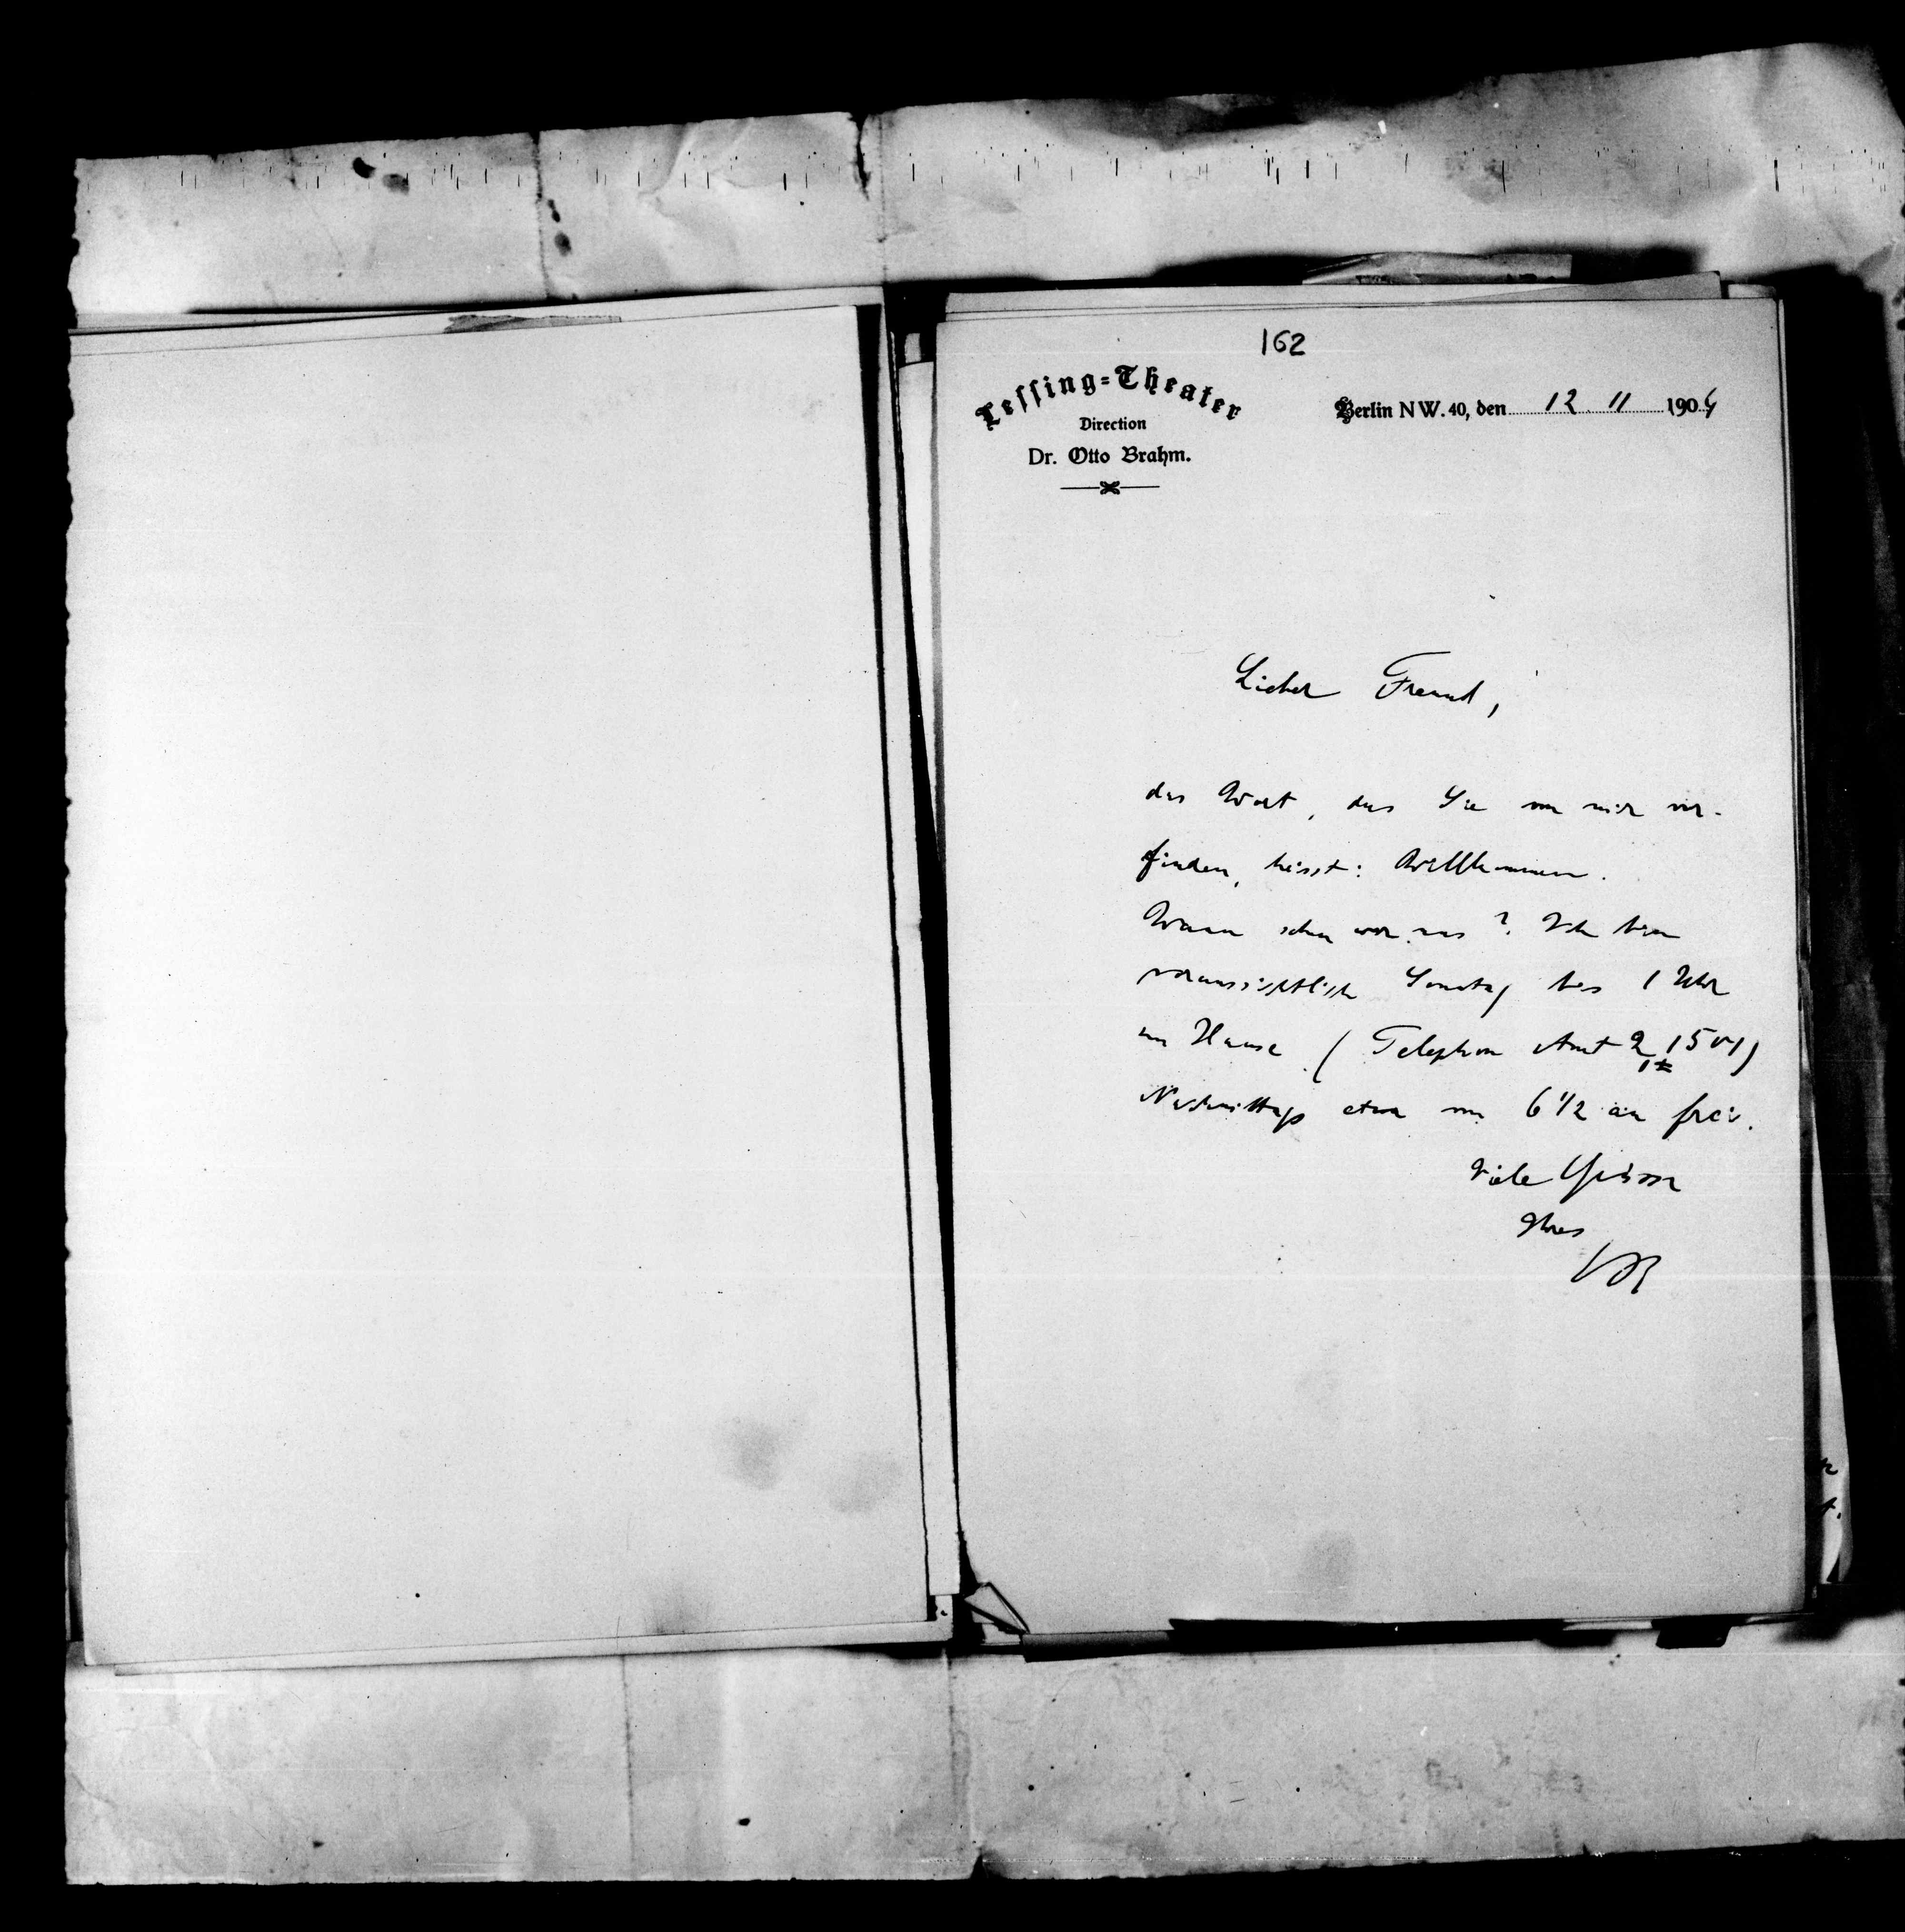 162
Lessing=Theater
Direction
Dr. Otto Brahm.
Berlin NW. 40, den 12 11 1904
Lieber Freund,
das Wort, das Sie von mir vor-
finden, heisst: Willkommen.
Wann sehen wir uns? Ich bin
voraussichtlich Sonntag bis 1 Uhr
im Hause (Telephon Amt 2 1501)
Nachmittags etwa von 6 1/2 an frei.
Viele Grüsse
Ihres
OB